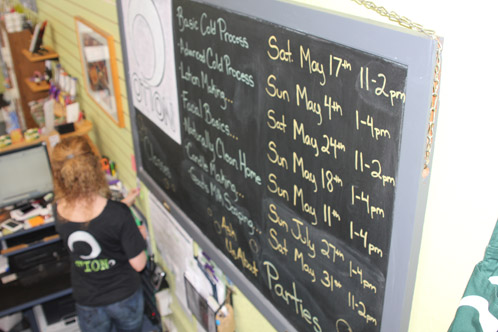 OTION
Basic Cold Process Sat. May 17th 11-2pm
Advanced Cold Process Sun May 4th 1-4pm
Lotion Making... Sat May 24th 11-2pm
Facial Basics... Sun May 18th 1-4pm
Naturally Clean Home Sun May 11th 1-4pm
Candle Making... Sun July 27th 1-4pm
Goat's Milk Soaping... Sat. May 31st 11-2pm
Ask
Us About
Parties
TION?